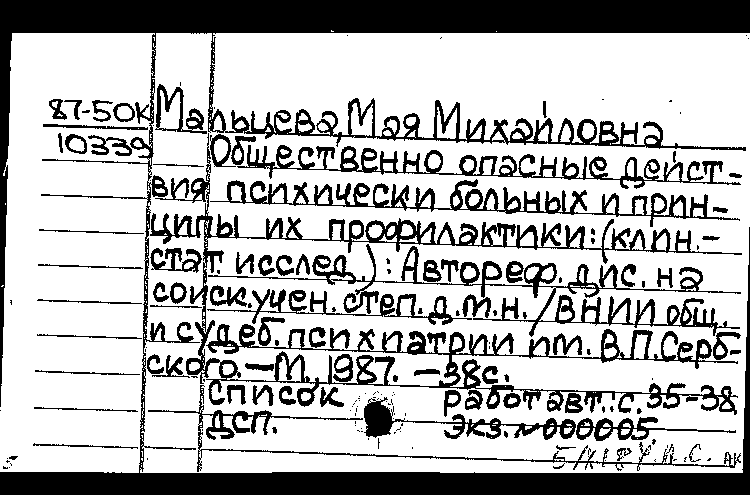 87-50К
10339
Мальцева, Мая Михайловна.
Общественно опасные дейст-
вия психически больных и прин-
ципы их профилактики: (клин.-
стат. исслед.): Автореф. дис. на
соиск. учен. степ. д.м.н. / ВНИИ общ.
и судеб. психиатрии им. В.П. Серб-
ского. — М., 1987. — 38с.
Список работ авт.: с. 35-38.
ДСП. Экз. №000005.
АК
5